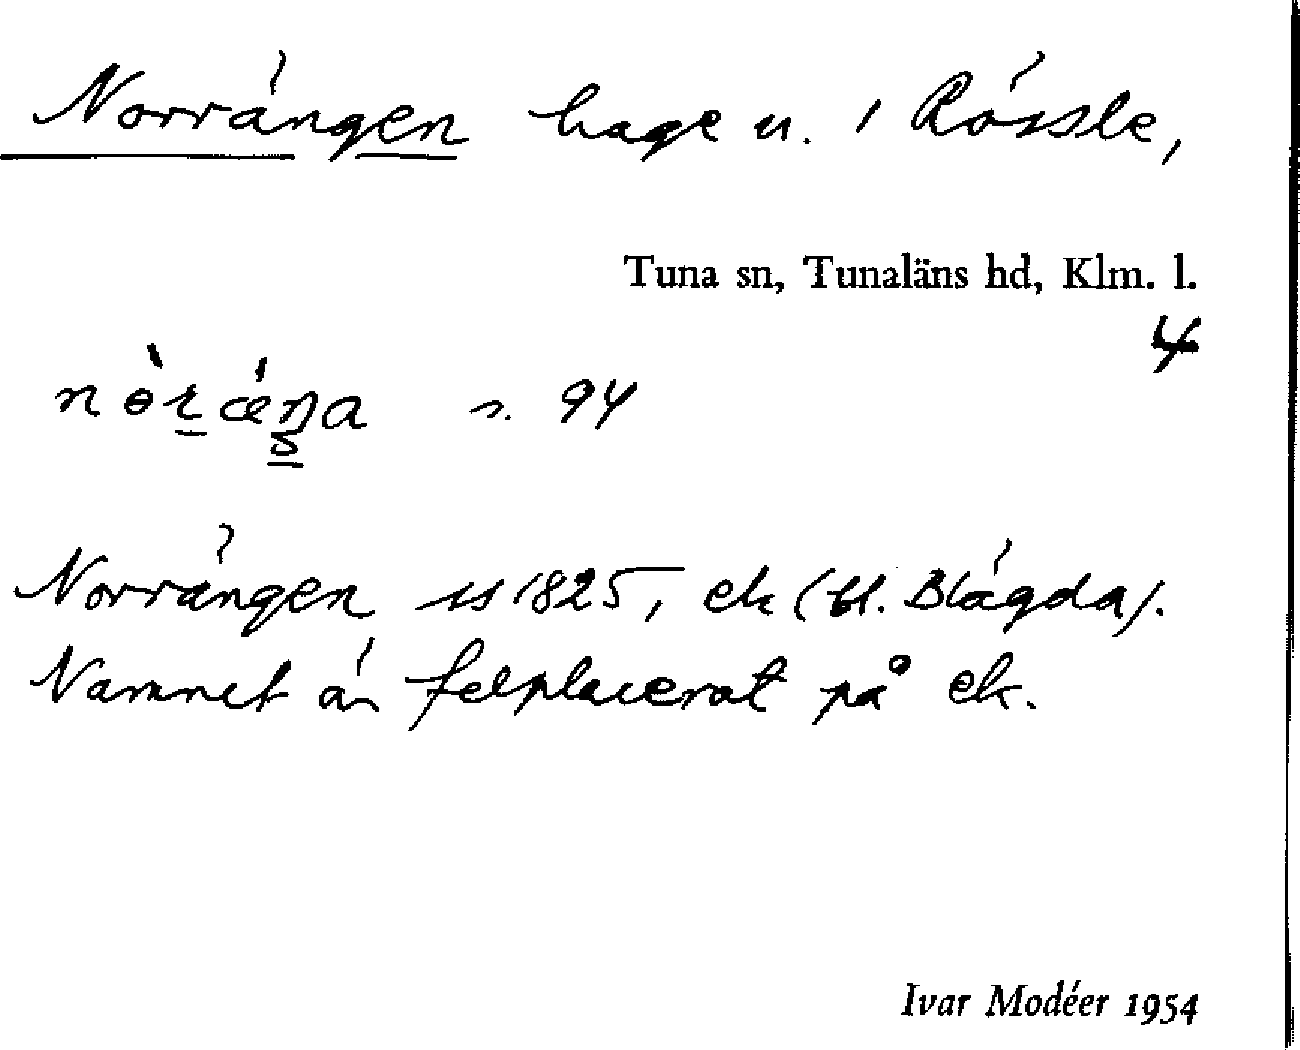 Norrängen hage u. 1 Rössle,
Tuna sn, Tunaläns hd, Klm. l.
4
s. 94
Norrängen ss 1825, ek (t. Blägda).
Namnet är felplacerat på ek.
Ivar Modéer 1954